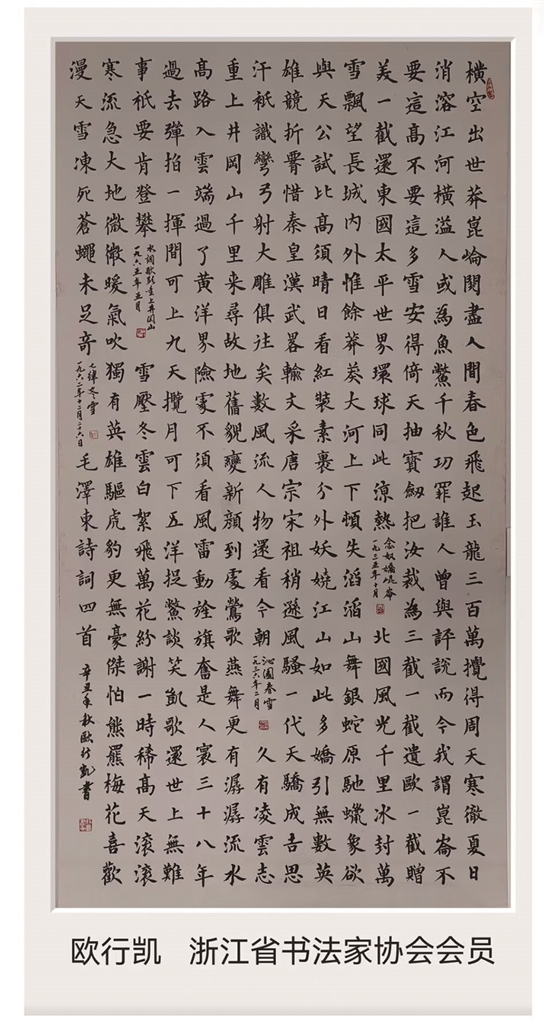 橫空出世莽崑崘閱盡人間春色飛起玉龍三百萬攪得周天寒徹夏日
消溶江河橫溢人或為魚鱉千秋功罪誰人曾與評說而今我謂崑崙不
要這高不要這多雪安得倚天抽寶劍把汝裁為三截一截遺歐一截贈
美一截還東國太平世界環球同此涼熱
念奴嬌崐崙
一九三五年十月
北國風光千里冰封萬
雪飄望長城內外惟餘莽莽大河上下頓失滔滔山舞銀蛇原馳蠟象欲
與天公試比高須晴日看紅裝素裹分外妖嬈江山如此多嬌引無數英
雄競折惜秦皇漢武畧輸文采唐宗宋祖稍遜風騷一代天驕成吉思
汗祇識彎弓射大雕俱往矣數風流人物還看今朝
沁園春雪
一九三六年二月
久有凌雲志
重上井岡山千里來尋故地舊貌變新顏到處鶯歌燕舞更有潺潺流水
高路入雲端過了黃洋界險處不須看風雷動旌旗奮是人寰三十八年
過去彈指一揮間可上九天攬月可下五洋捉鱉談笑凱歌還世上無難
事祇要肯登攀
水調歌頭重上井岡山
一九六五年五月
雪壓冬雲白絮飛萬花紛謝一時稀高天滾滾
寒流急大地微微暖氣吹獨有英雄驅虎豹更無豪傑怕熊羆梅花喜歡
漫天雪凍死蒼蠅未足奇
七律冬雪
一九六二年十二月二十六日
毛澤東詩詞四首
辛丑年秋歐行凱書
欧行凯 浙江省书法家协会会员